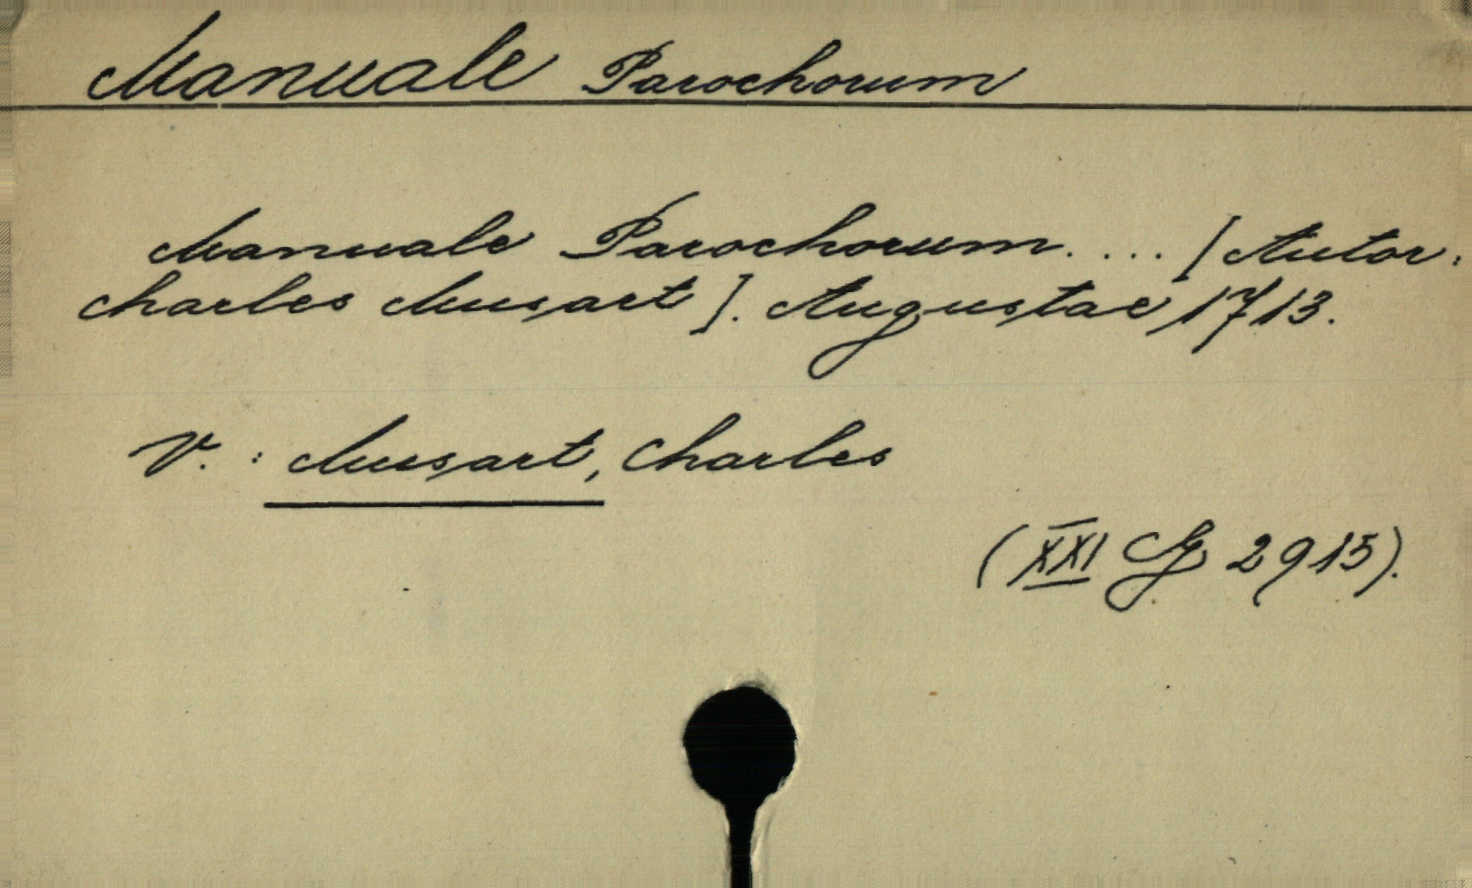 Manuale Parochorum
Manuale Parochorum. ... [Autor:
Charles Musart]. Augustae, 1713.
V.: Musart, Charles
(XXI G 2915).